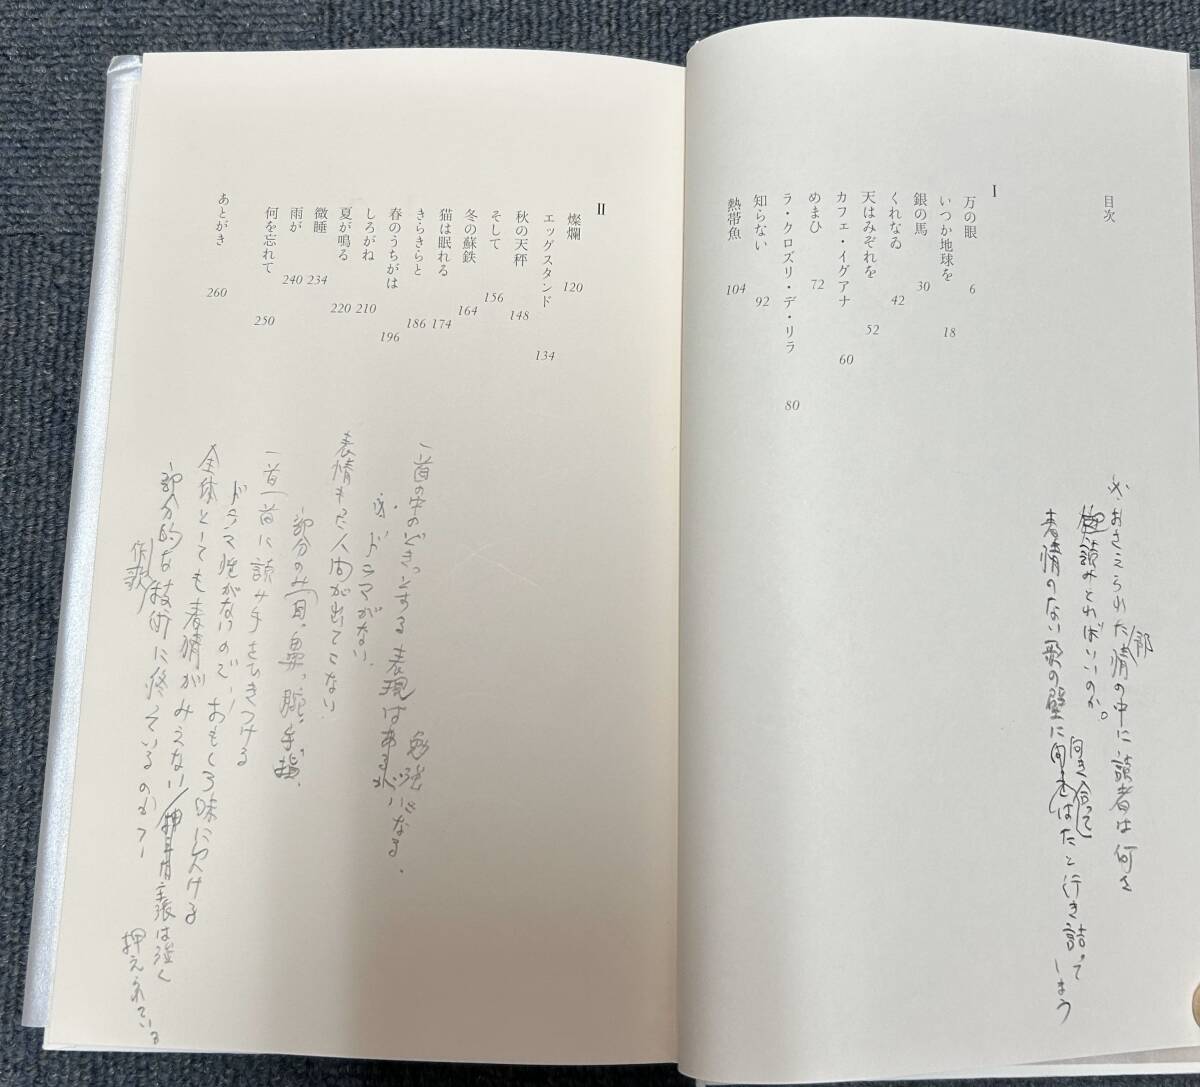 目次
I
万の眼 6
いつか地球を 18
銀の馬 30
くれなゐ 42
天はみぞれを 52
カフェ・イグアナ 60
めまひ 72
ラ・クロズリ・デ・リラ 80
知らない 92
熱帯魚 104
おさえられた情の中に読者は何を
部
読みとればいいのか。
向き合って
表情のない歌の壁に はたと行き詰って
しまう
II
燦爛 120
エッグスタンド 134
秋の天秤 148
そして 156
冬の蘇鉄 164
猫は眠れる 174
きらきらと 186
春のうちがは 196
しろがね 210
夏が鳴る 220
微睡 234
雨が 240
何を忘れて 250
あとがき 260
一首の中のどきっとする表現はあるが
勉強になる。
ドラマがない。
表情をもった人間が出てこない。
部分のみ 目、鼻、腕、手、指、
一首一首に読み手をひきつける
ドラマ性がないので、おもしろ味に欠ける
全体としても表情がみえない
主張は強く
押えられている
部分的な技術に終っているのか？
作歌